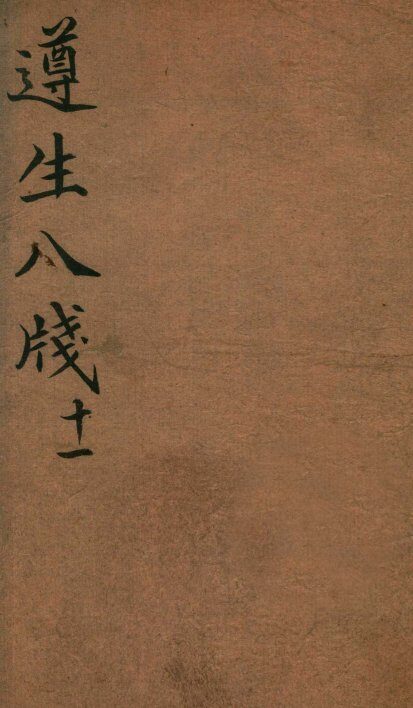 遵生八牋十一